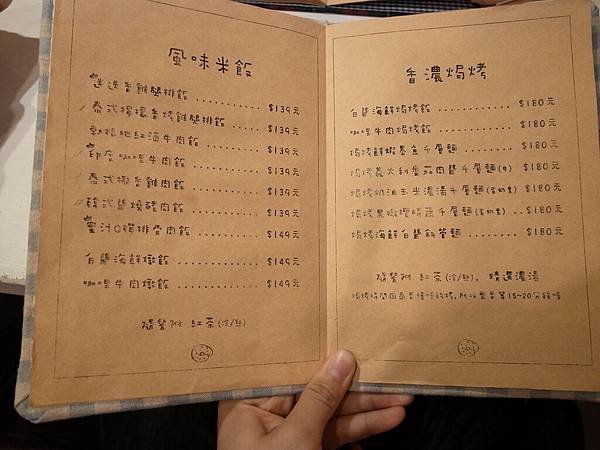 風味米飯
迷迭香雞腿排飯 ........... $139元
泰式檸檬香烤雞腿排飯 ..... $139元
勃根地紅酒牛肉飯 ......... $139元
印度咖哩牛肉飯 ........... $139元
泰式椰香雞肉飯 ........... $139元
韓式醬燒豬肉飯 ........... $139元
蜜汁QQ排骨肉飯 ........... $149元
白醬海鮮燉飯 ............. $149元
咖哩牛肉燉飯 ............. $149元
隨餐附 紅茶(冷/熱)
香濃焗烤
白醬海鮮焗烤飯 .......... $180元
咖哩牛肉焗烤飯 .......... $180元
焗烤鮮蝦墨魚千層麵 ...... $180元
焗烤義大利番茄肉醬千層麵(牛) $180元
焗烤奶油玉米濃湯千層麵(蛋奶素) $180元
焗烤黑橄欖時蔬千層麵(蛋奶素) .. $180元
焗烤海鮮白醬筆管麵 ...... $180元
隨餐附 紅茶(冷/熱), 精選濃湯
15~20分鐘喔